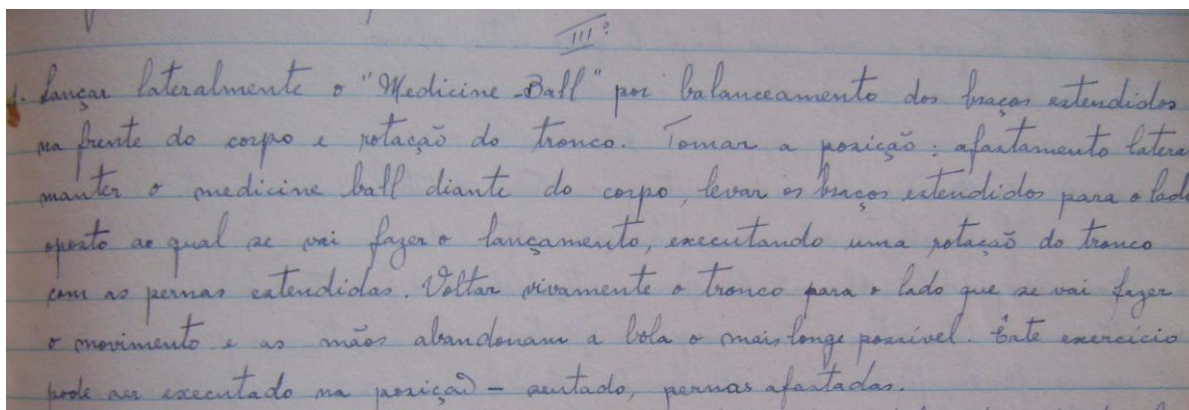 IIIº
1. Lançar lateralmente o "Medicine-Ball" por balanceamento dos braços estendidos
na frente do corpo e rotação do tronco. Tomar a posição: afastamento latera
manter o medicine ball diante do corpo, levar os braços estendidos para o lado
oposto ao qual se vai fazer o lançamento, executando uma rotação do tronco
com as pernas estendidas. Voltar vivamente o tronco para o lado que se vai fazer
o movimento e as mãos abandonam a bola o mais longe possível. Êste exercício
pode ser executado na posição - sentado, pernas afastadas.